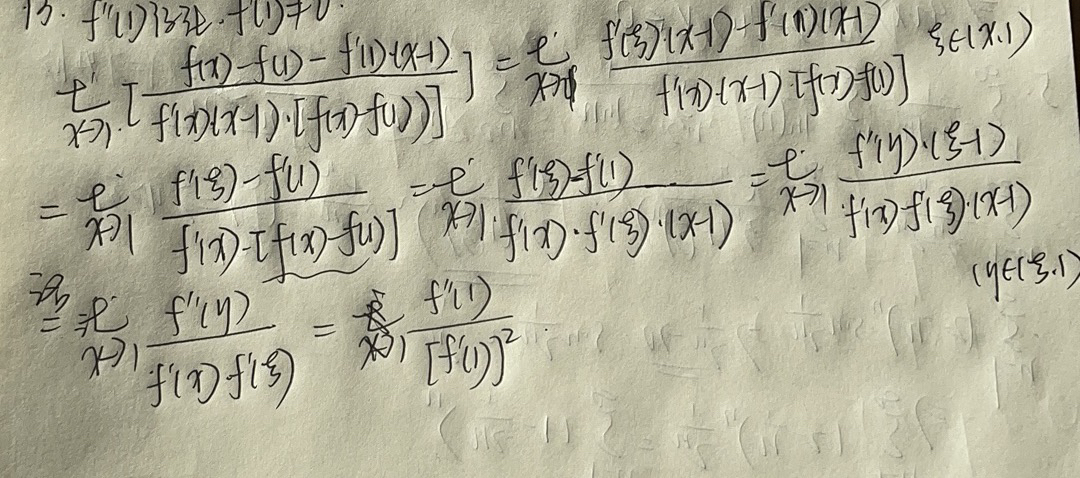 13. f''(1)连续. f'(1)≠0.
lim x→1 [ (f(x)-f(1)-f'(1)(x-1)) / (f'(x)(x-1)·[f(x)-f(1)]) ] = lim x→1 (f'(ξ)·(x-1)-f'(1)(x-1)) / (f'(x)·(x-1)·[f(x)-f(1)]) ξ∈(x,1)
= lim x→1 (f'(ξ)-f'(1)) / (f'(x)·[f(x)-f(1)]) = lim x→1 (f'(ξ)-f'(1)) / (f'(x)·f'(ξ)·(x-1)) = lim x→1 (f''(y)·(ξ-1)) / (f'(x)·f'(ξ)·(x-1))
(y∈(ξ,1)
= lim x→1 f''(y) / (f'(x)·f'(ξ)) = x→1 f''(1) / [f'(1)]²